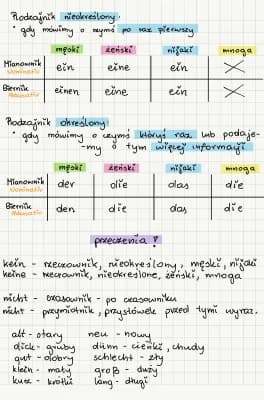 Rodzajnik nieokreślony.
• gdy mówimy o czymś po raz pierwszy
męski żeński nijaki mnoga
Mianownik ein eine ein X
Nominativ
Biernik einen eine ein X
Akkusativ
Rodzajnik określony
• gdy mówimy o czymś któryś raz lub podaje-
-my o tym więcej informacji
męski żeński nijaki mnoga
Mianownik der die das die
Nominativ
Biernik den die das die
Akkusativ
przeczenia!
kein - rzeczownik, nieokreślony, męski, nijaki
keine - rzeczownik, nieokreślone, żeński, mnoga
nicht - czasownik - po czasowniku
nicht - przymiotnik, przysłówek przed tymi wyraz.
alt - stary neu - nowy
dick - gruby dünn - cienki, chudy
gut - dobry schlecht - zły
klein - mały groß - duży
kurz - krótki lang - długi